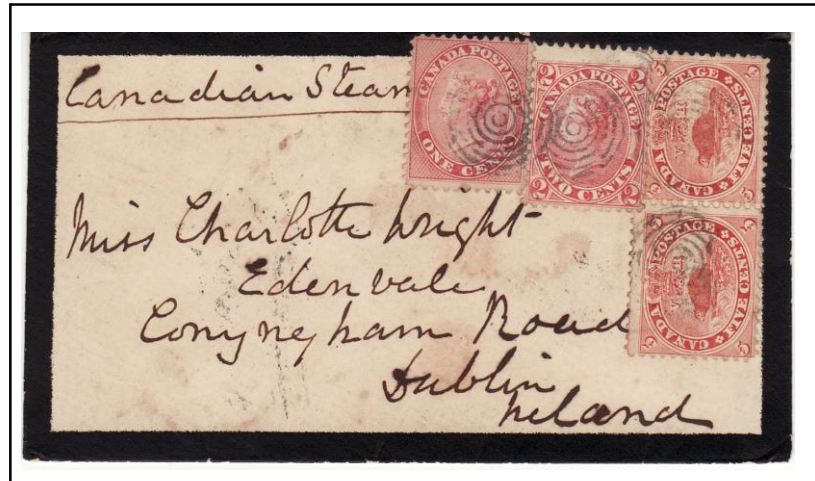 Canadian Steam
CANADA POSTAGE
ONE CENT
2 CANADA POSTAGE 2
2 TWO CENTS 2
5 POSTAGE 5
CANADA FIVE CENTS
5 POSTAGE 5
CANADA FIVE CENTS
Miss Charlotte Wright
Edenvale
Conyngham Road
Dublin
Ireland